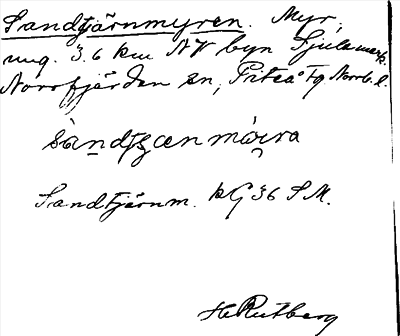 Sandtjärnmyren. Myr,
ung. 3.6 km NV byn Sjulsmark
Norrfjärden sn, Piteå tg Norrb. l.
Sandtjärnm. kG 36 SM.
H Rutberg